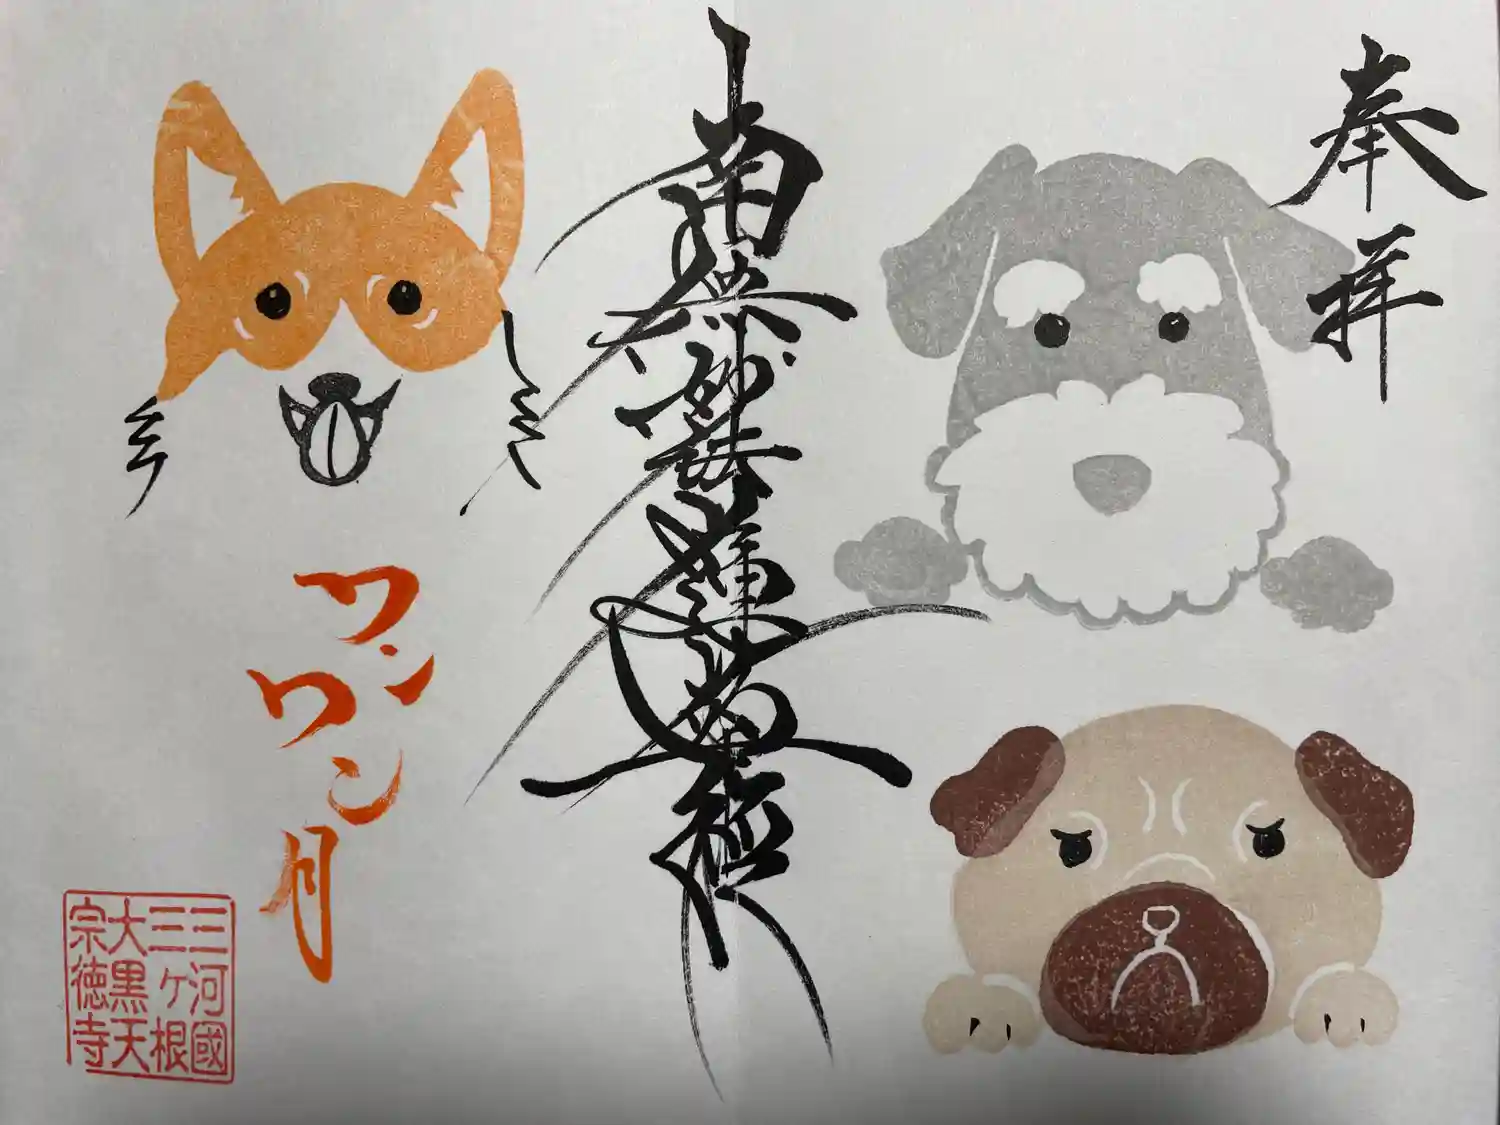 奉拝
南無妙法蓮華経
ワン
ワン
月
三河國
三ヶ根
大黒天
宗徳寺